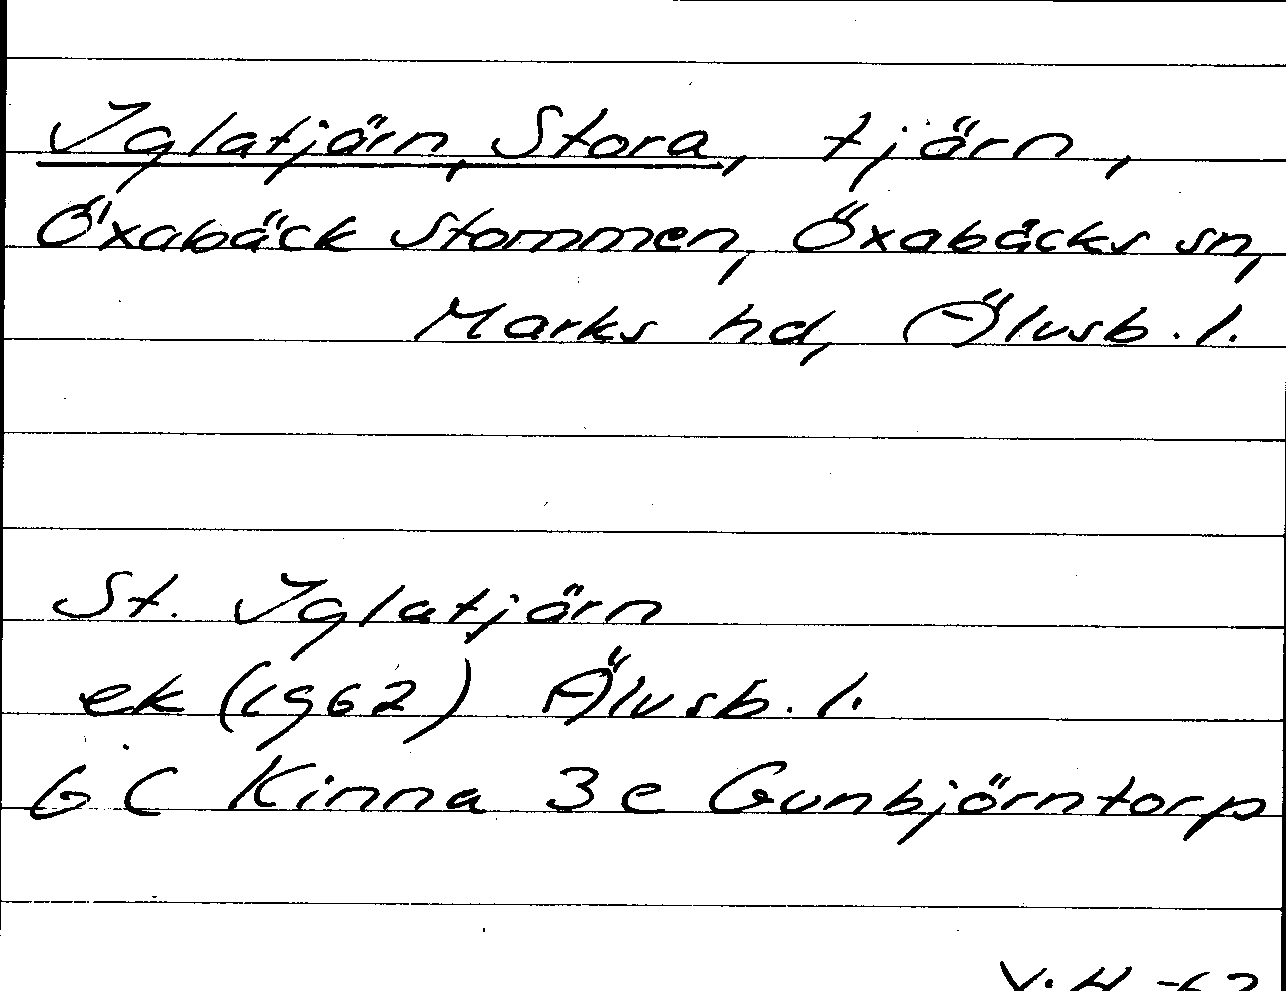 Iglatjärn, Stora, tjärn,
Öxabäck Stommen, Öxabäcks sn,
Marks hd, Älvsb. l.
St. Iglatjärn
ek (1962) Älvsb. l.
6 C Kinna 3 e Gunbjörntorp